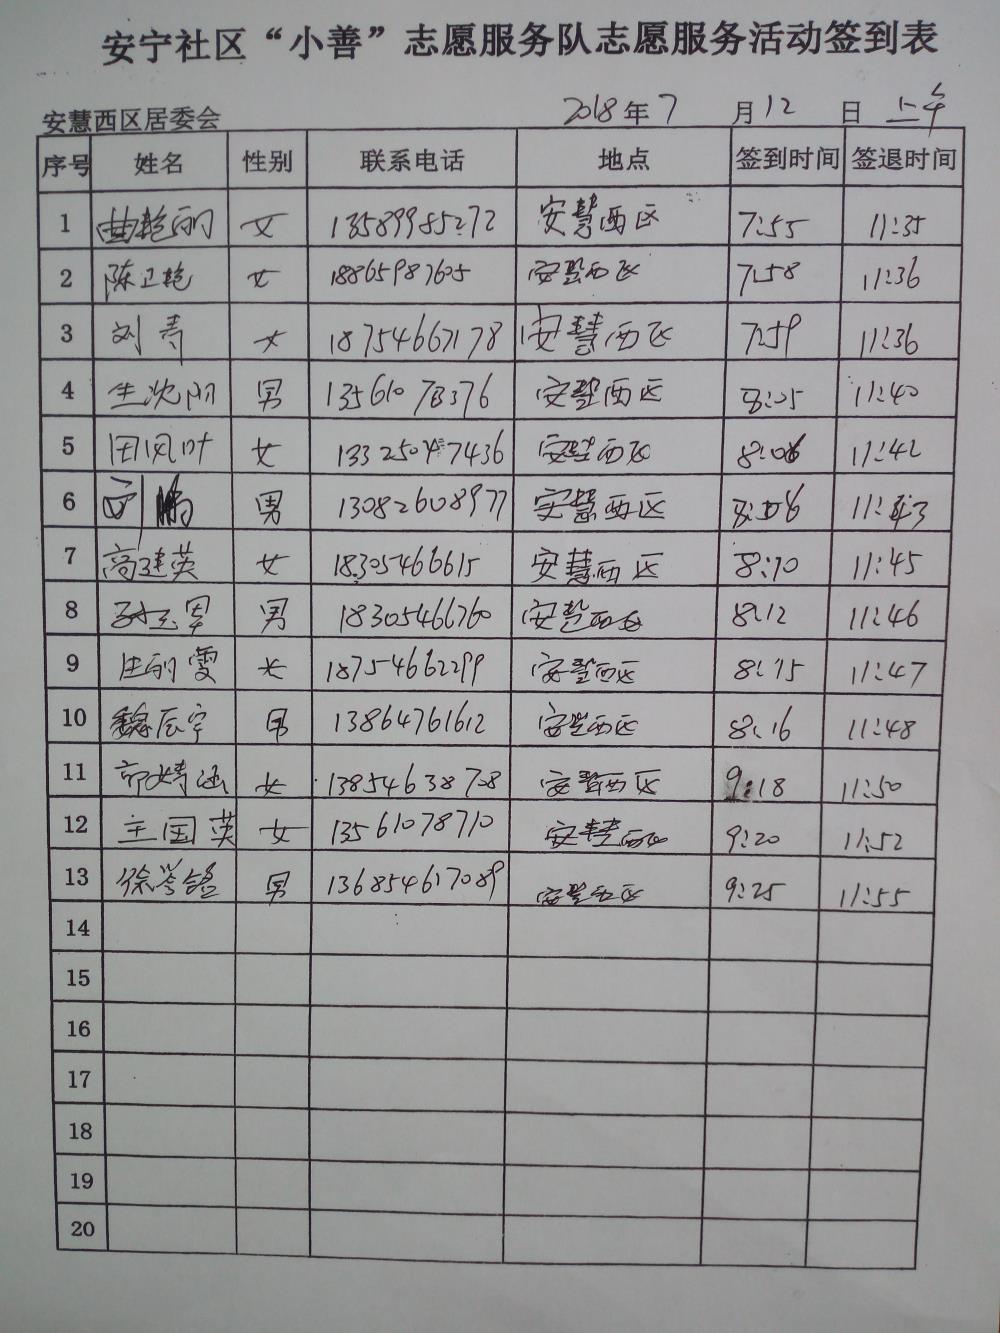 安宁社区“小善”志愿服务队志愿服务活动签到表
安慧西区居委会 2018年7月12日 上午
序号 姓名 性别 联系电话 地点 签到时间 签退时间
1 曲艳丽 女 13589985272 安慧西区 7:55 11:35
2 陈卫艳 女 18865987605 安慧西区 7:58 11:36
3 刘青 女 18754667178 安慧西区 7:59 11:36
4 生沈丽 男 13561078376 安慧西区 8:05 11:40
5 田凤叶 女 安慧西区 8:06 11:42
6 男 13082608977 安慧西区 11:43
7 高建英 女 18305466615 安慧西区 8:10 11:45
8 男 18305466760 安慧西区 8:12 11:46
9 庄丽雯 女 18754662299 安慧西区 8:15 11:47
10 魏辰宇 男 13864761612 安慧西区 8:16 11:48
11 郭婧涵 女 13854638708 安慧西区 9:18 11:50
12 王国英 女 13561078710 安慧西区 9:20 11:52
13 徐 男 136854617089 安慧西区 9:25 11:55
14
15
16
17
18
19
20